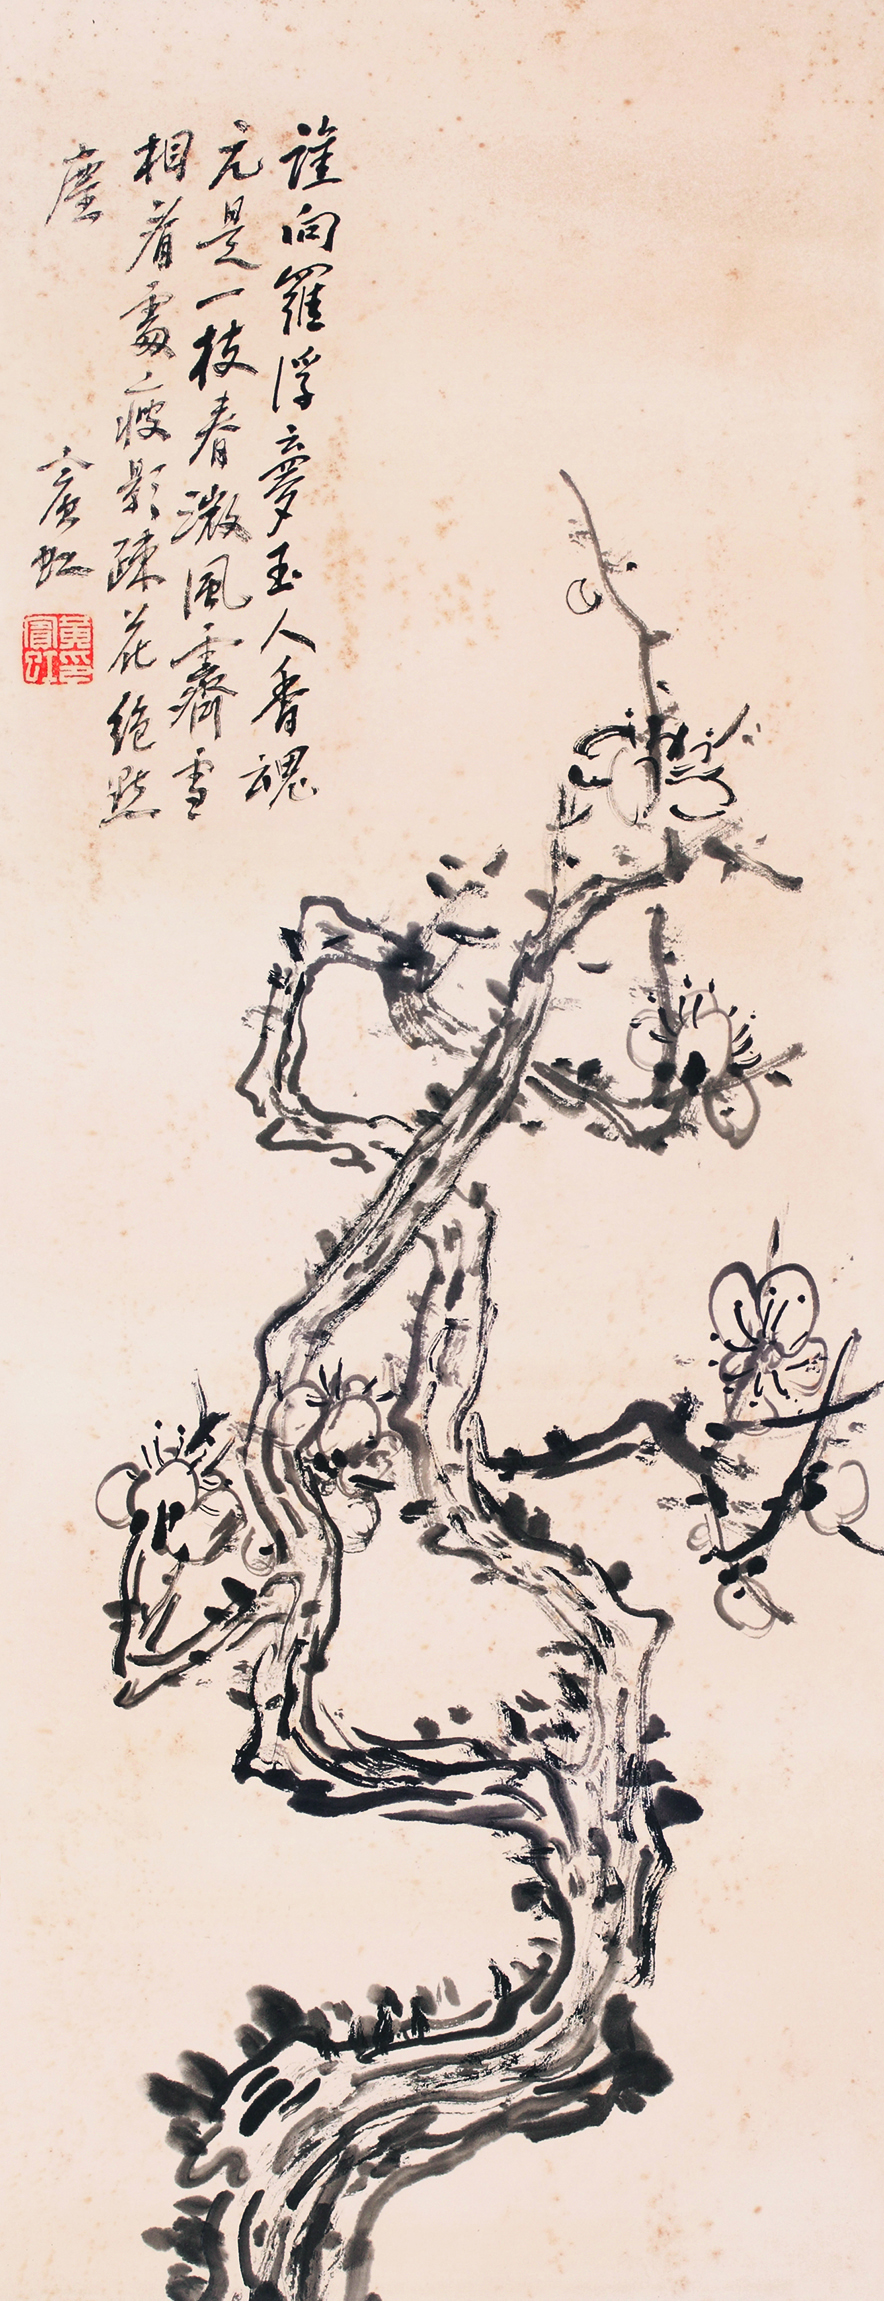 誰向羅浮夢玉人香魂
元是一枝春微風霽雪
相看處瘦影疎花絶點
塵
賓虹
黃賓虹印